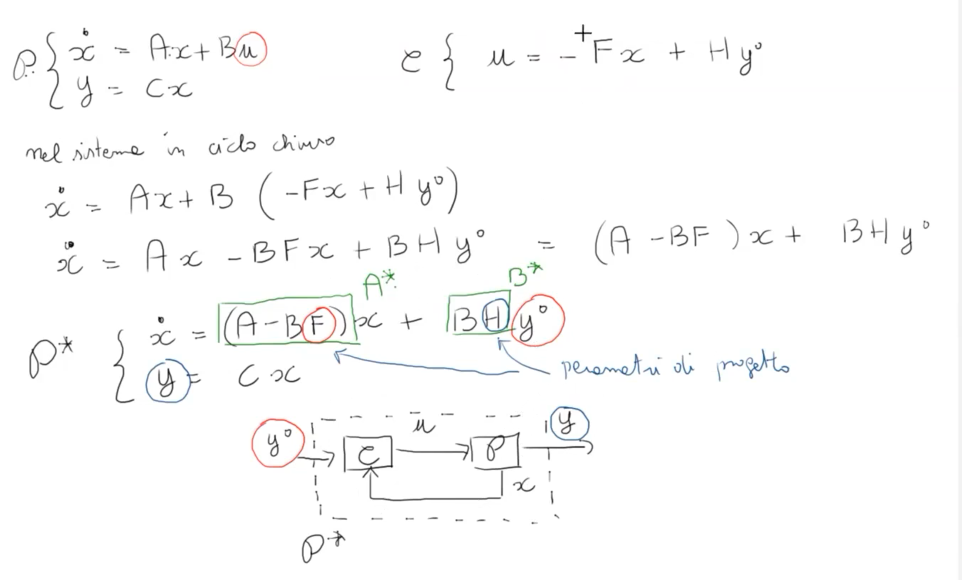 P: { ẋ = Ax + Bu
y = Cx
C { u = -⁺Fx + Hy°
nel sistema in ciclo chiuso
ẋ = Ax + B (-Fx + Hy°)
ẋ = Ax - BFx + BHy° = (A - BF)x + BHy°
A* B*
P* { ẋ = (A - BF)x + BHy°
y = Cx
parametri di progetto
y° C u P y
x
P*